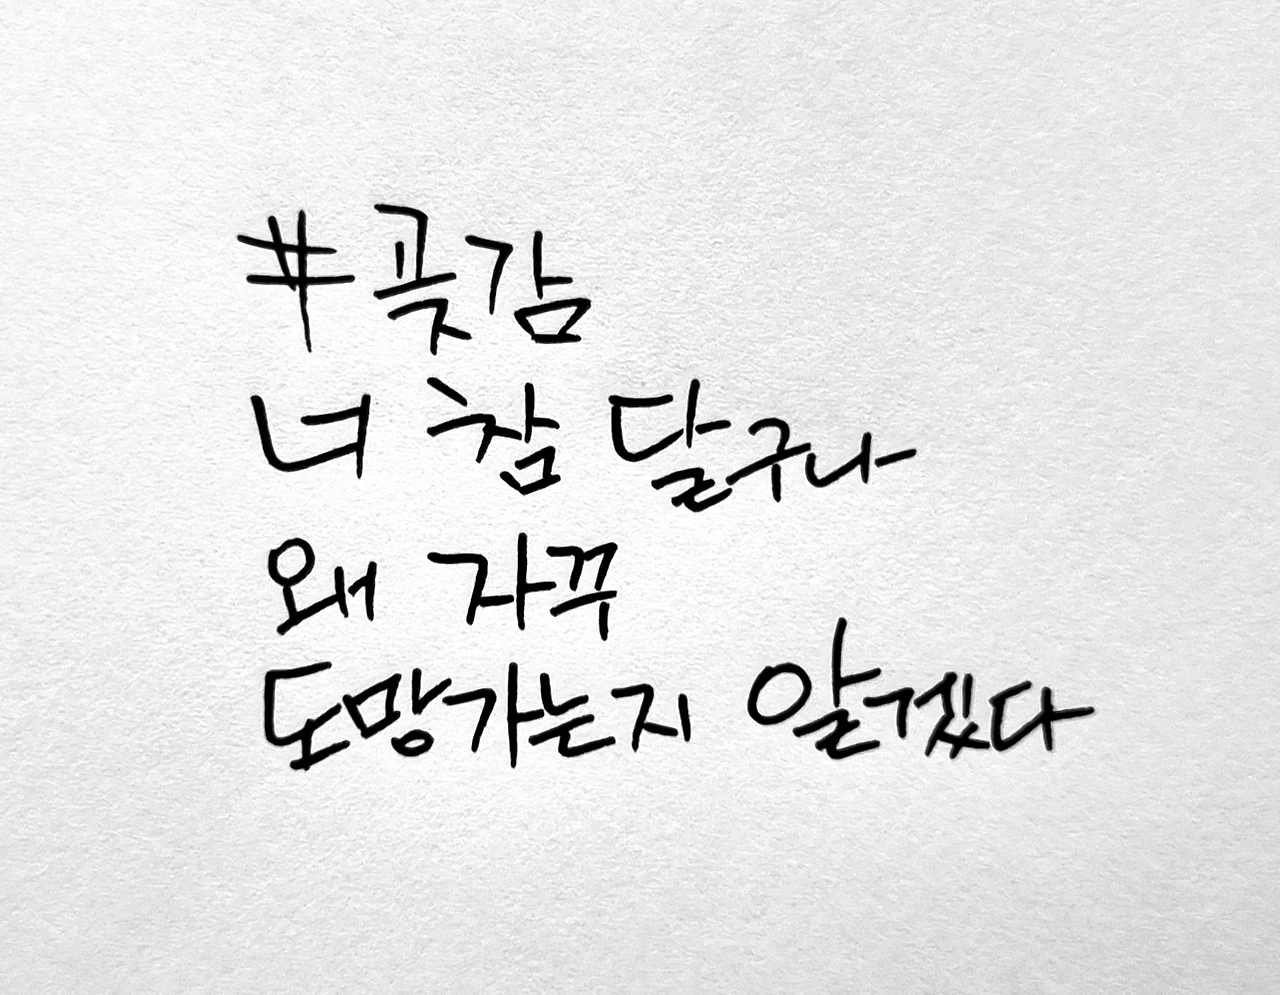 #곶감
너 참 달구나
왜 자꾸
도망가는지 알겠다